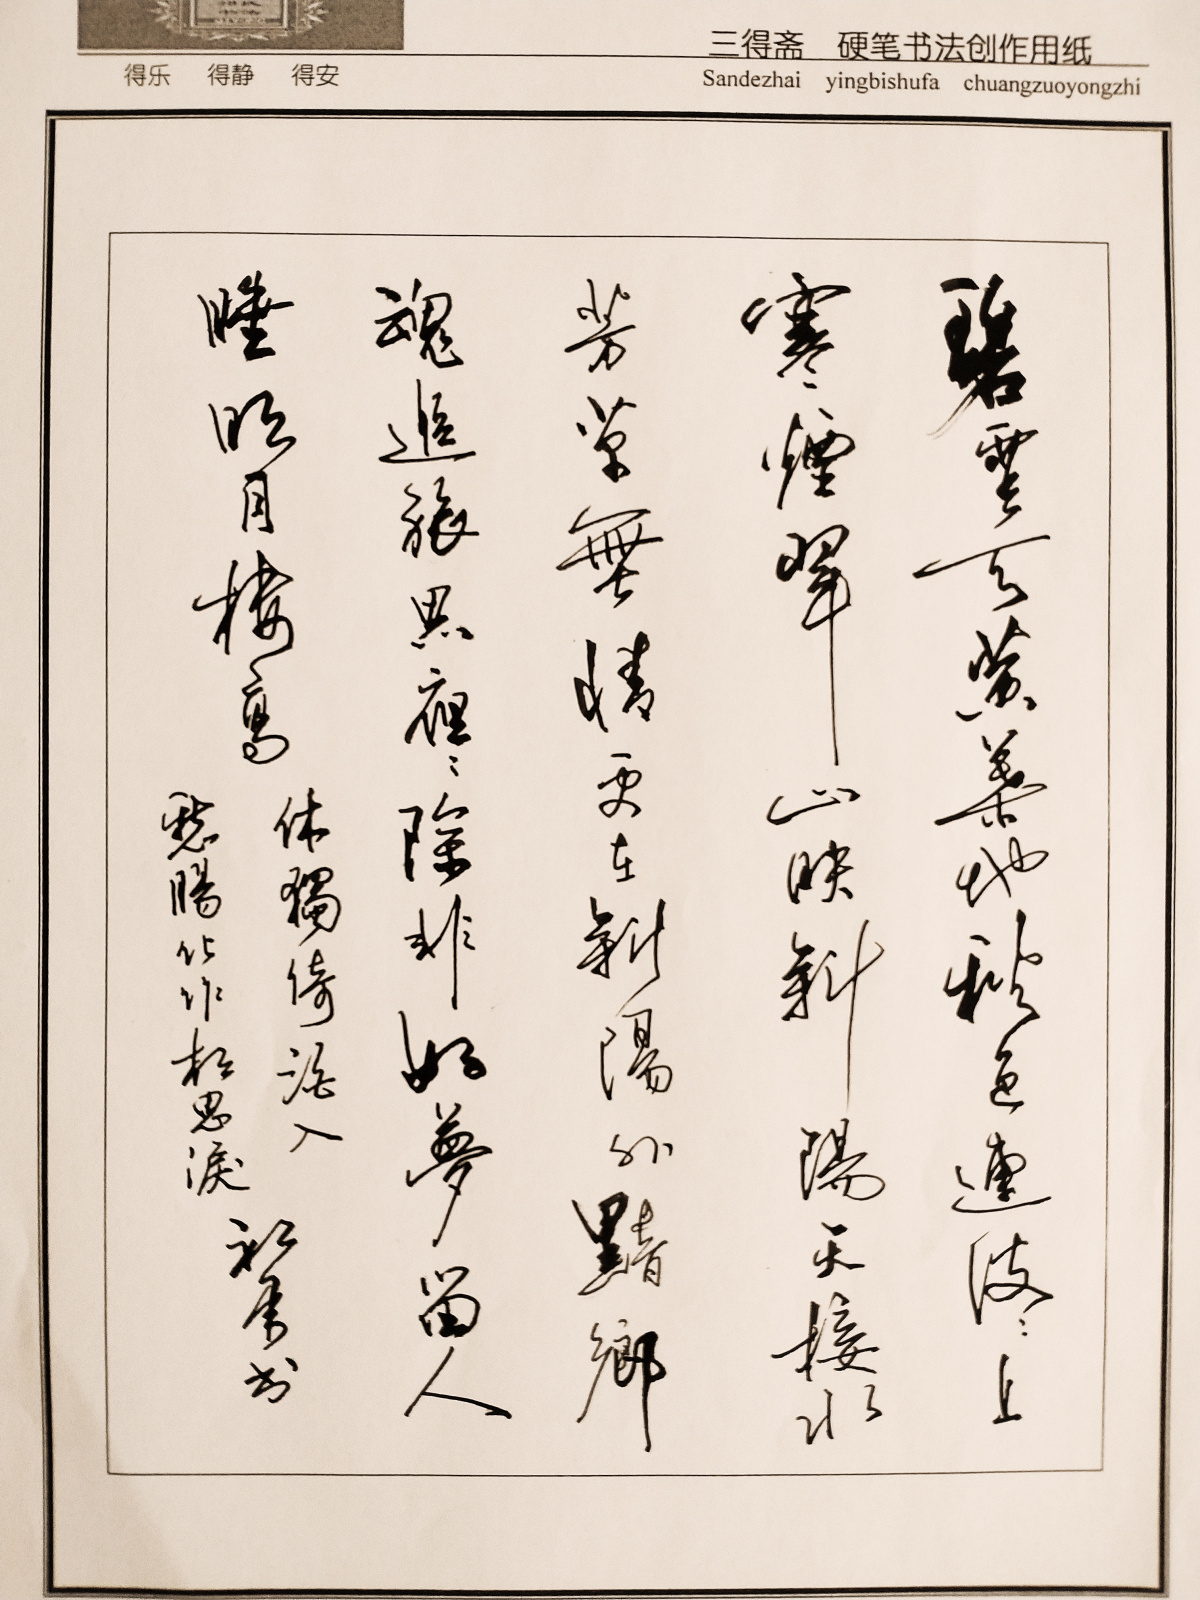 三得斋 硬笔书法创作用纸
得乐 得静 得安
Sandezhai yingbishufa chuangzuoyongzhi
碧雲天黄葉地秋色連波〻上
寒煙翠山映斜陽天接水
芳草無情更在斜陽外黯鄉
魂追旅思夜〻除非好夢留人
睡明月樓高
休獨倚酒入
愁腸化作相思淚
书